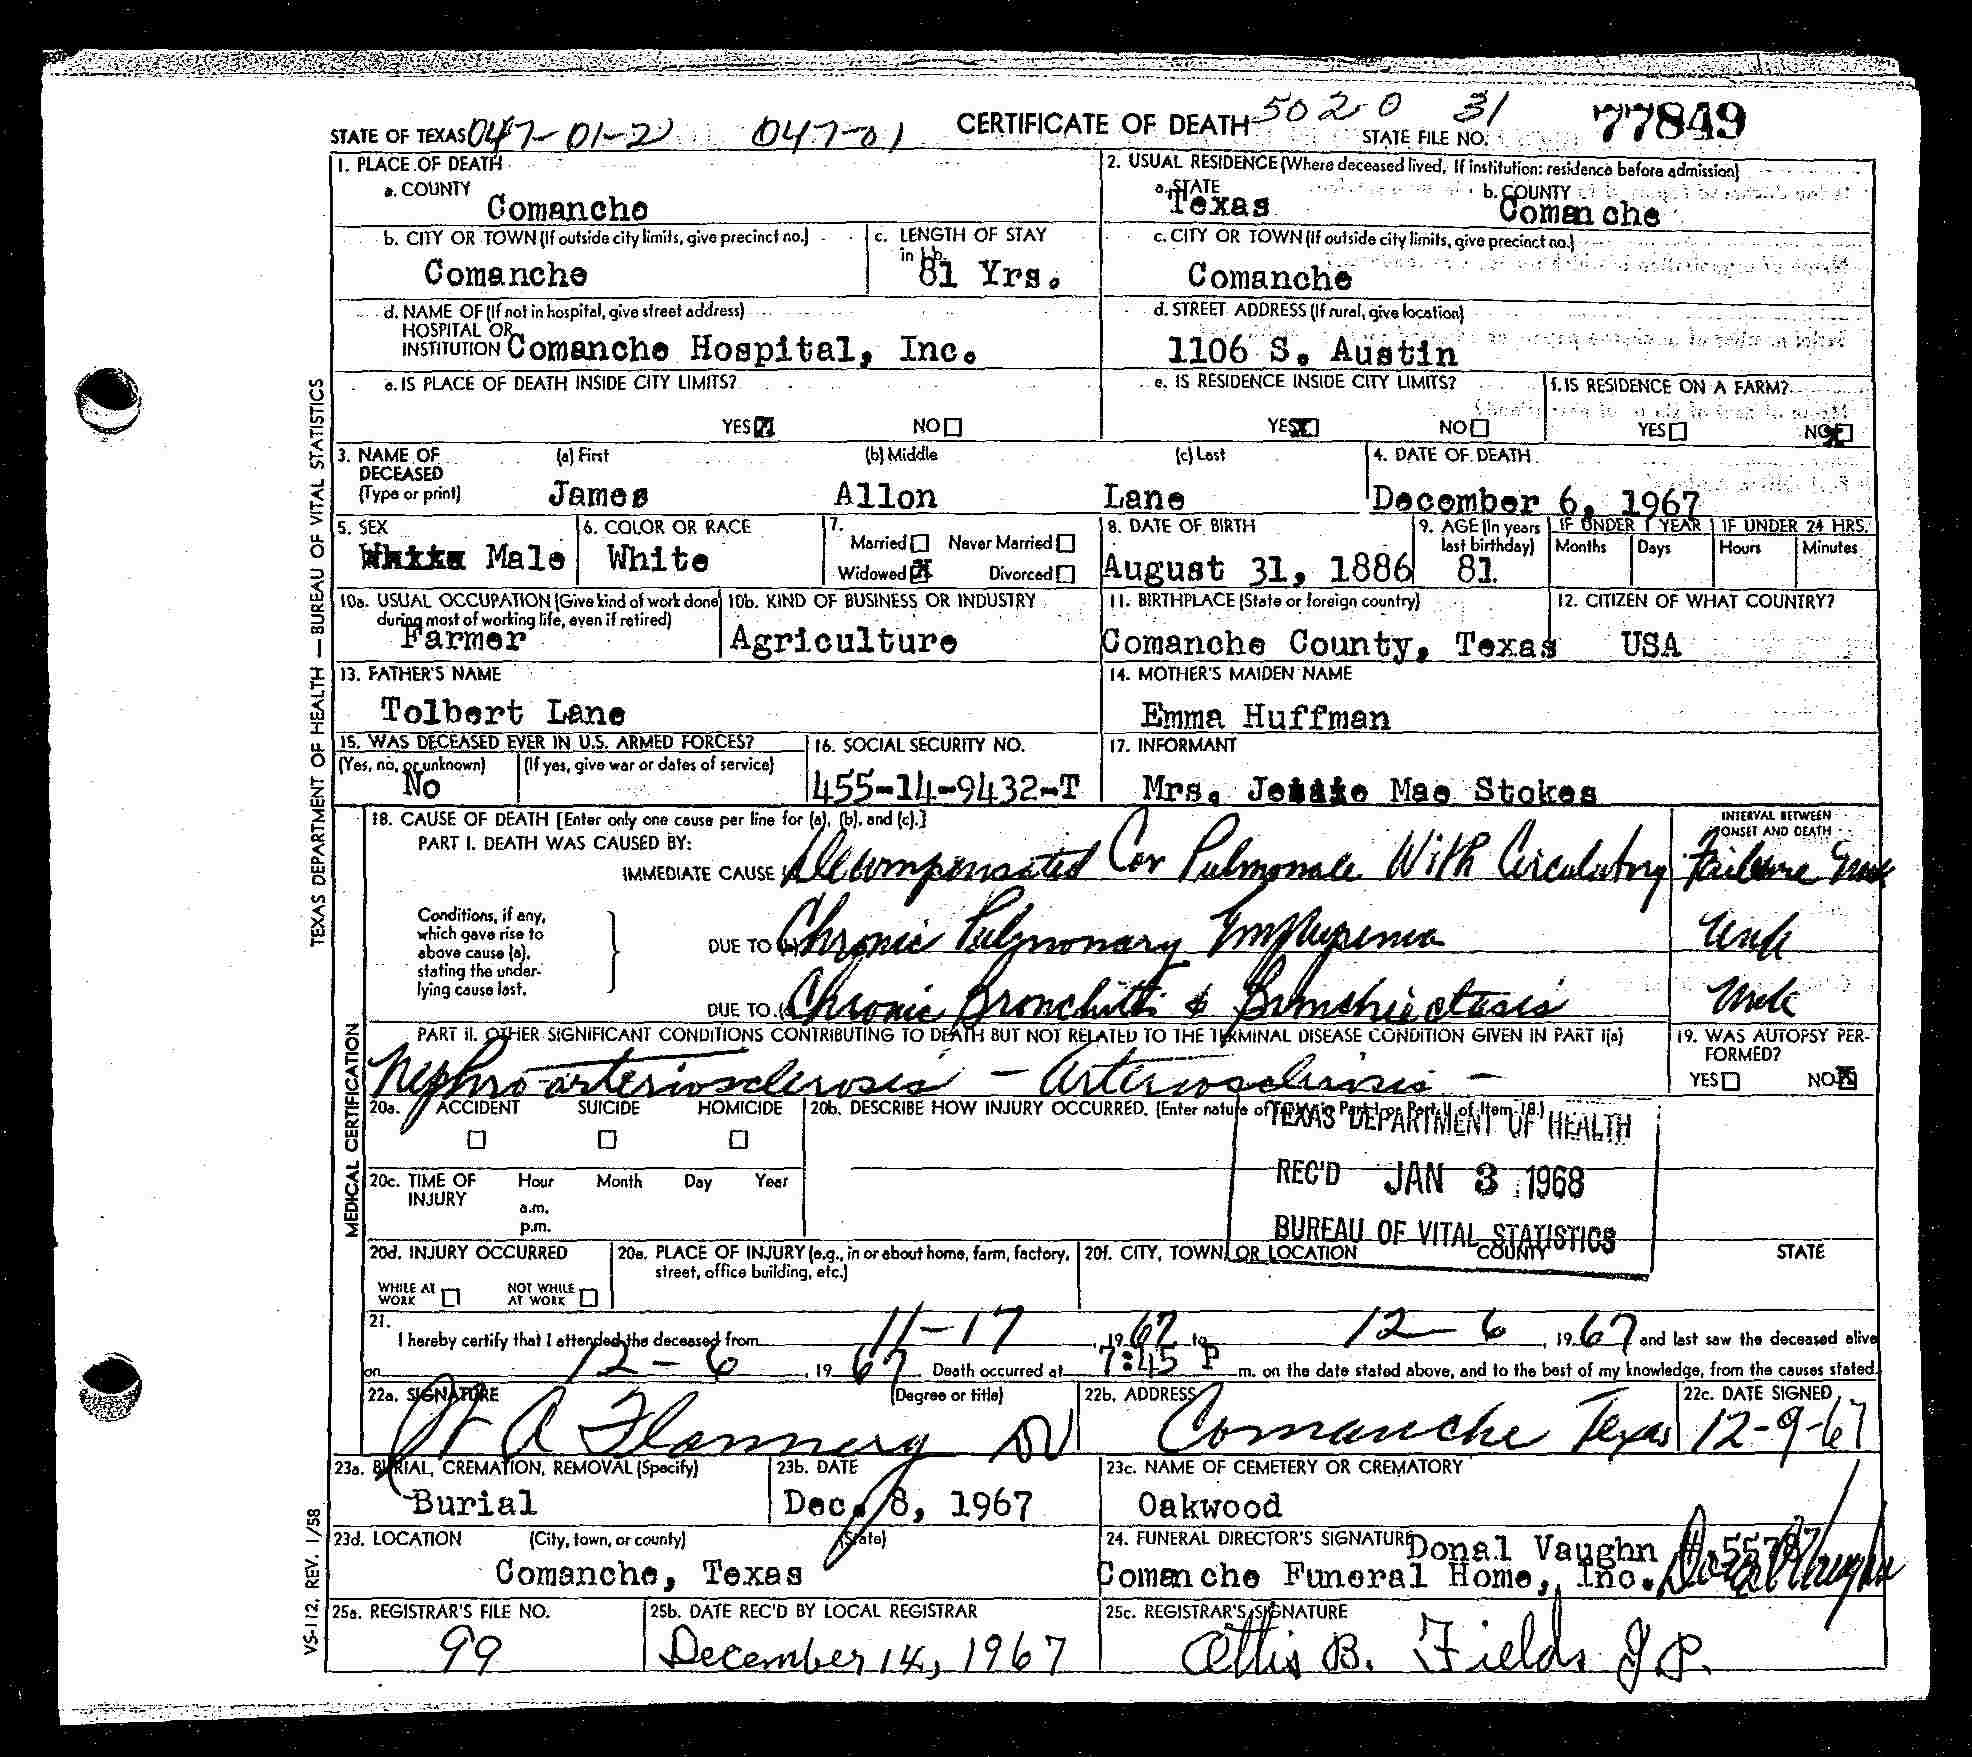 STATE OF TEXAS 047-01-2 047-01 CERTIFICATE OF DEATH 5020 31 STATE FILE NO. 77849
1. PLACE OF DEATH
a. COUNTY
Comanche
2. USUAL RESIDENCE (Where deceased lived, If institution: residence before admission)
a. STATE
Texas
b. COUNTY
Comanche
b. CITY OR TOWN (If outside city limits, give precinct no.)
Comanche
c. LENGTH OF STAY
in 1b.
81 Yrs.
c. CITY OR TOWN (If outside city limits, give precinct no.)
Comanche
d. NAME OF (If not in hospital, give street address)
HOSPITAL OR
INSTITUTION Comanche Hospital, Inc.
d. STREET ADDRESS (If rural, give location)
1106 S. Austin
e. IS PLACE OF DEATH INSIDE CITY LIMITS?
YES NO
e. IS RESIDENCE INSIDE CITY LIMITS?
YES NO
f. IS RESIDENCE ON A FARM?
YES NO
3. NAME OF
DECEASED
(Type or print)
(a) First (b) Middle (c) Last
James Allon Lane
4. DATE OF DEATH
December 6, 1967
5. SEX
Male
6. COLOR OR RACE
White
7.
Married Never Married
Widowed Divorced
8. DATE OF BIRTH
August 31, 1886
9. AGE (In years
last birthday)
81
IF UNDER 1 YEAR
Months Days
IF UNDER 24 HRS.
Hours Minutes
10a. USUAL OCCUPATION (Give kind of work done
during most of working life, even if retired)
Farmer
10b. KIND OF BUSINESS OR INDUSTRY
Agriculture
11. BIRTHPLACE (State or foreign country)
Comanche County, Texas
12. CITIZEN OF WHAT COUNTRY?
USA
13. FATHER'S NAME
Tolbert Lane
14. MOTHER'S MAIDEN NAME
Emma Huffman
15. WAS DECEASED EVER IN U.S. ARMED FORCES?
(Yes, no, or unknown) (If yes, give war or dates of service)
No
16. SOCIAL SECURITY NO.
455-14-9432-T
17. INFORMANT
Mrs. Mae Stokes
18. CAUSE OF DEATH [Enter only one cause per line for (a), (b), and (c).]
INTERVAL BETWEEN
ONSET AND DEATH
PART I. DEATH WAS CAUSED BY:
IMMEDIATE CAUSE (a) Decompensated Cor Pulmonale With Circulatory Failure Unk
Conditions, if any,
which gave rise to
above cause (a),
stating the under-
lying cause last.
DUE TO (b) Chronic Pulmonary Emphysema Unk
DUE TO (c) Chronic Bronchitis & Bronchiectasis Unk
PART II. OTHER SIGNIFICANT CONDITIONS CONTRIBUTING TO DEATH BUT NOT RELATED TO THE TERMINAL DISEASE CONDITION GIVEN IN PART I(a)
Nephro-arteriosclerosis - Arteriosclerosis -
19. WAS AUTOPSY PER-
FORMED?
YES NO
20a. ACCIDENT SUICIDE HOMICIDE
20b. DESCRIBE HOW INJURY OCCURRED. (Enter nature of injury in Part I or Part II of Item 18.)
TEXAS DEPARTMENT OF HEALTH
REC'D JAN 3 1968
BUREAU OF VITAL STATISTICS
20c. TIME OF
INJURY
Hour Month Day Year
a.m.
p.m.
20d. INJURY OCCURRED
WHILE AT
WORK
NOT WHILE
AT WORK
20e. PLACE OF INJURY (e.g., in or about home, farm, factory,
street, office building, etc.)
20f. CITY, TOWN, OR LOCATION COUNTY STATE
21.
I hereby certify that I attended the deceased from 11-17, 1967 to 12-6, 1967 and last saw the deceased alive
on 12-6, 1967. Death occurred at 7:45 P m. on the date stated above, and to the best of my knowledge, from the causes stated.
22a. SIGNATURE (Degree or title)
W A Flannery
22b. ADDRESS
Comanche Texas
22c. DATE SIGNED
12-9-67
23a. BURIAL, CREMATION, REMOVAL (Specify)
Burial
23b. DATE
Dec. 8, 1967
23c. NAME OF CEMETERY OR CREMATORY
Oakwood
23d. LOCATION (City, town, or county) (State)
Comanche, Texas
24. FUNERAL DIRECTOR'S SIGNATURE Donal Vaughn
Comanche Funeral Home, Inc.
25a. REGISTRAR'S FILE NO.
99
25b. DATE REC'D BY LOCAL REGISTRAR
December 14, 1967
25c. REGISTRAR'S SIGNATURE
Ottis B. Fields J P.
TEXAS DEPARTMENT OF HEALTH — BUREAU OF VITAL STATISTICS
MEDICAL CERTIFICATION
VS-112, REV. 1/58